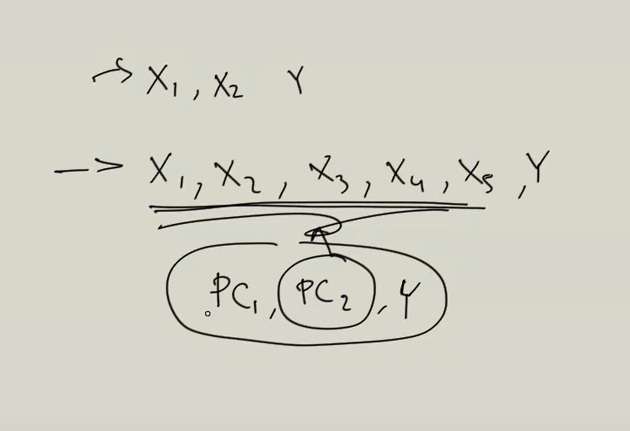 → X₁, X₂ Y
→ X₁, X₂, X₃, X₄, X₅, Y
PC₁, PC₂, Y